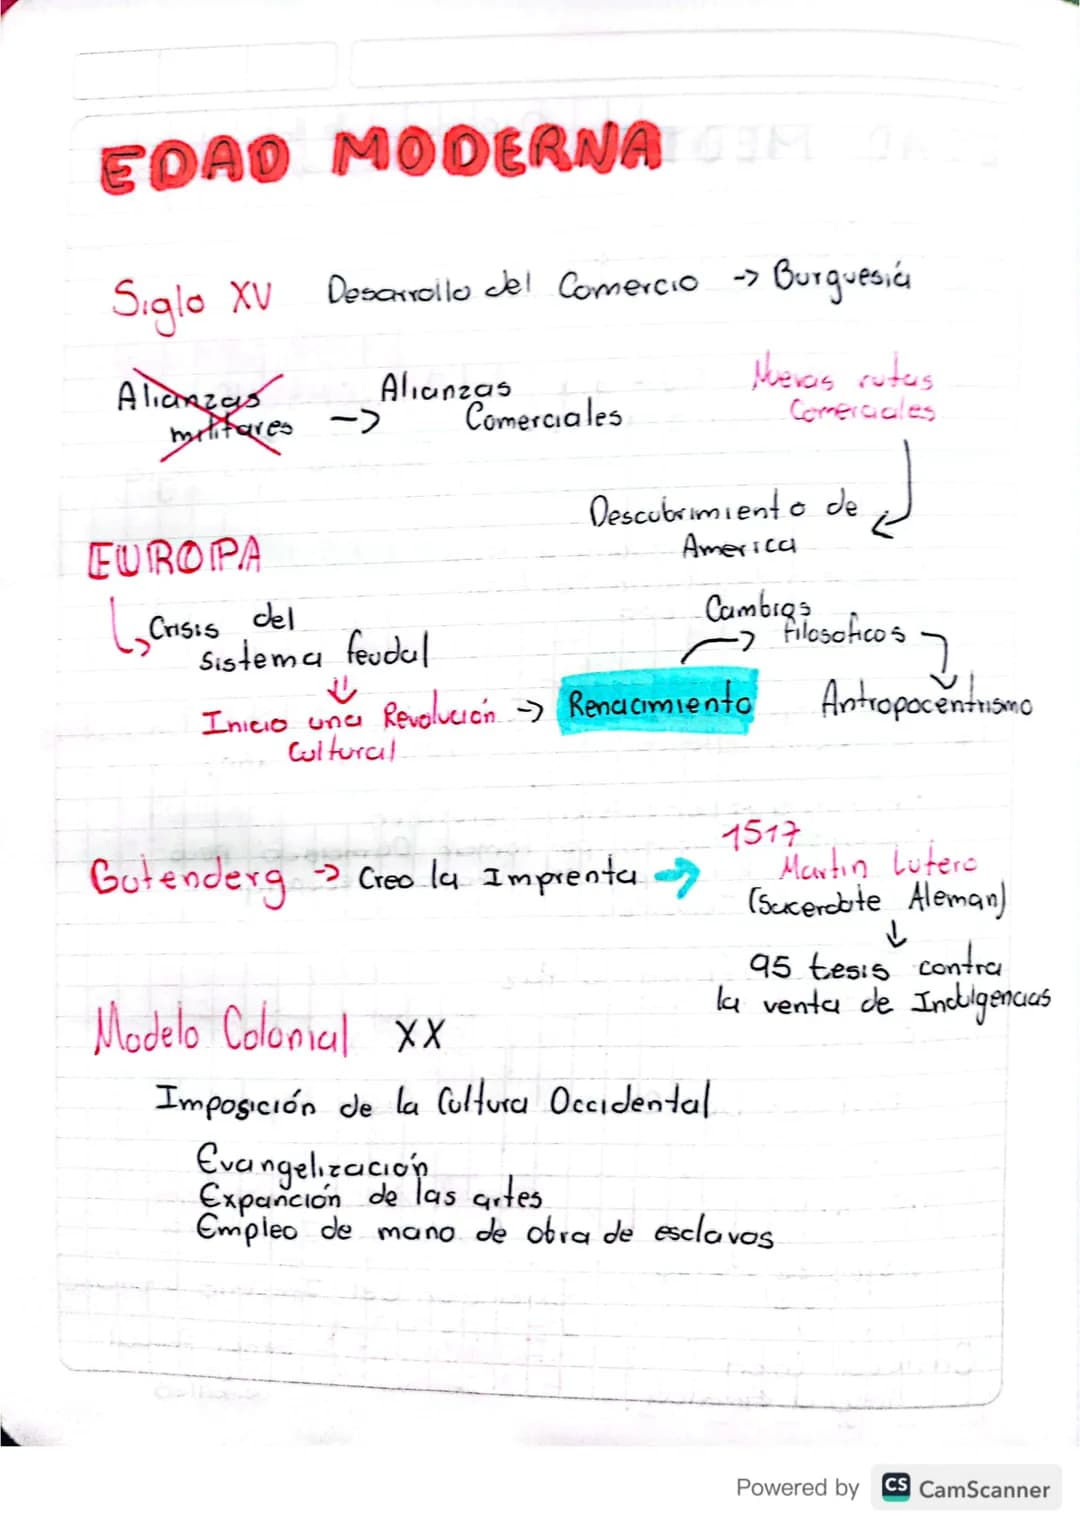 EDAD MODERNA
Siglo XV Desarrollo del Comercio -> Burguesiá
Alianzas
militares -> Alianzas
Comerciales
Nuevas rutas
Comerciales
Descubrimiento de
America
EUROPA
Crisis del
Sistema feudal
Inicio una Revolución -> Renacimiento
Cultural
Cambios
filosoficos
Antropocentrismo
Gutenderg -> Creo la Imprenta ->
1517
Martin Lutero
(Sacerdote Aleman)
95 tesis contra
la venta de Indulgencias
Modelo Colonial XX
Imposición de la Cultura Occidental
Evangelización
Expanción de las artes
Empleo de mano de obra de esclavos
Powered by CS CamScanner